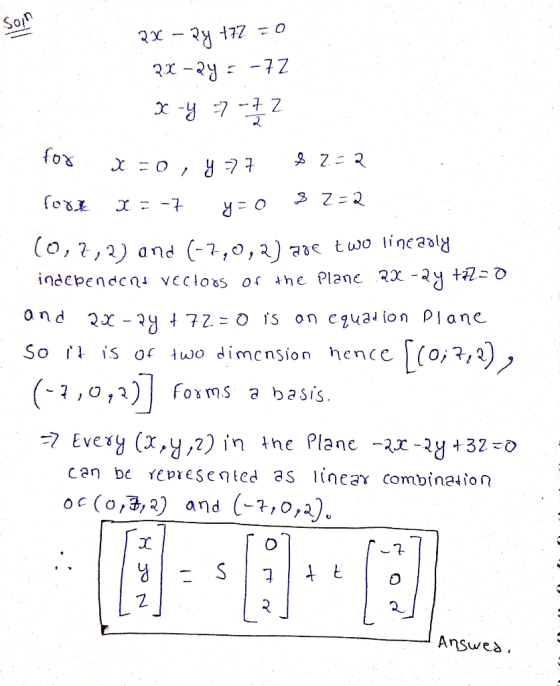 Soln
2x - 2y +7z = 0
2x - 2y = -7z
x - y => -7/2 z
for x = 0, y => 7 & z = 2
for x = -7 y = 0 & z = 2
(0, 7, 2) and (-7, 0, 2) are two linearly
independent vectors of the Plane 2x - 2y +7z = 0
and 2x - 2y + 7z = 0 is an equation Plane
So it is of two dimension hence [(0, 7, 2),
(-7, 0, 2)] Forms a basis.
=> Every (x, y, z) in the Plane -2x - 2y + 3z = 0
can be represented as linear combination
of (0, 7, 2) and (-7, 0, 2).
∴ [x y z] = s [0 7 2] + t [-7 0 2]
Answer.